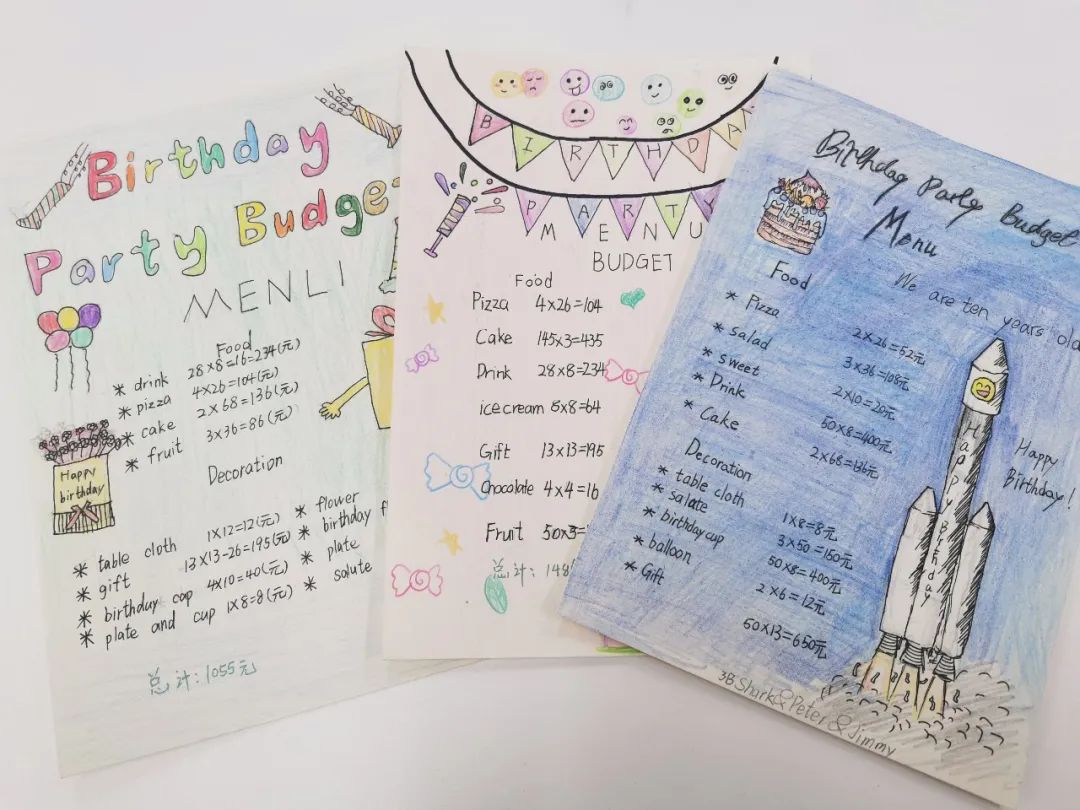 Birthday
Party Budge
MENLI
Food
* drink 28×8=16=234(元)
* pizza 4×26=104(元)
* cake 2×68=136(元)
* fruit 3×36=86(元)
Happy
birthday
Decoration
* table cloth 1×12=12(元)
* gift 13×13-26=195(元)
* birthday cap 4×10=40(元)
* plate and cup 1×8=8(元)
* flower
* birthday
* plate
* salute
总计:1055元
BIRTHDA
PARTY
MENU
BUDGET
Food
Pizza 4×26=104
Cake 145×3=435
Drink 28×8=234
ice cream 8×8=64
Gift 13×13=195
Chocolate 4×4=16
Fruit 50×3=
总计:148
Birthday Party Budget
Menu
We are ten years old
Food
* Pizza 2×26=52元
* salad 3×36=108元
* sweet 2×10=20元
* Drink 50×8=400元
* Cake 2×68=136元
Decoration
* table cloth 1×8=8元
* salate 3×50=150元
* birthday cup 50×8=400元
* balloon 2×6=12元
* Gift 50×13=650元
Happy Birthday
Happy
Birthday!
3B Shark&Peter&Jimmy